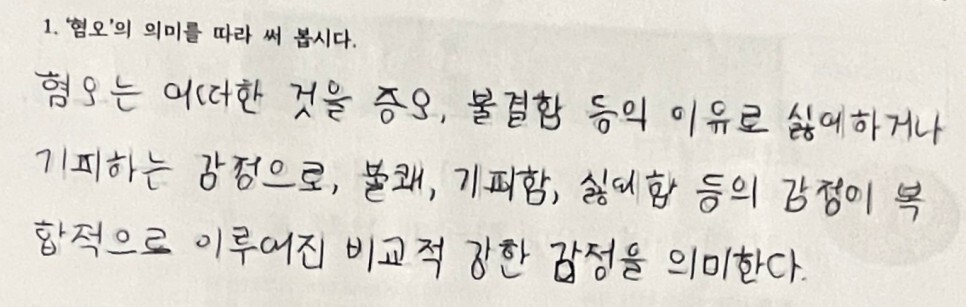 1. '혐오'의 의미를 따라 써 봅시다.
혐오는 어떠한 것을 증오, 불결함 등의 이유로 싫어하거나
기피하는 감정으로, 불쾌, 기피함, 싫어함 등의 감정이 복
합적으로 이루어진 비교적 강한 감정을 의미한다.